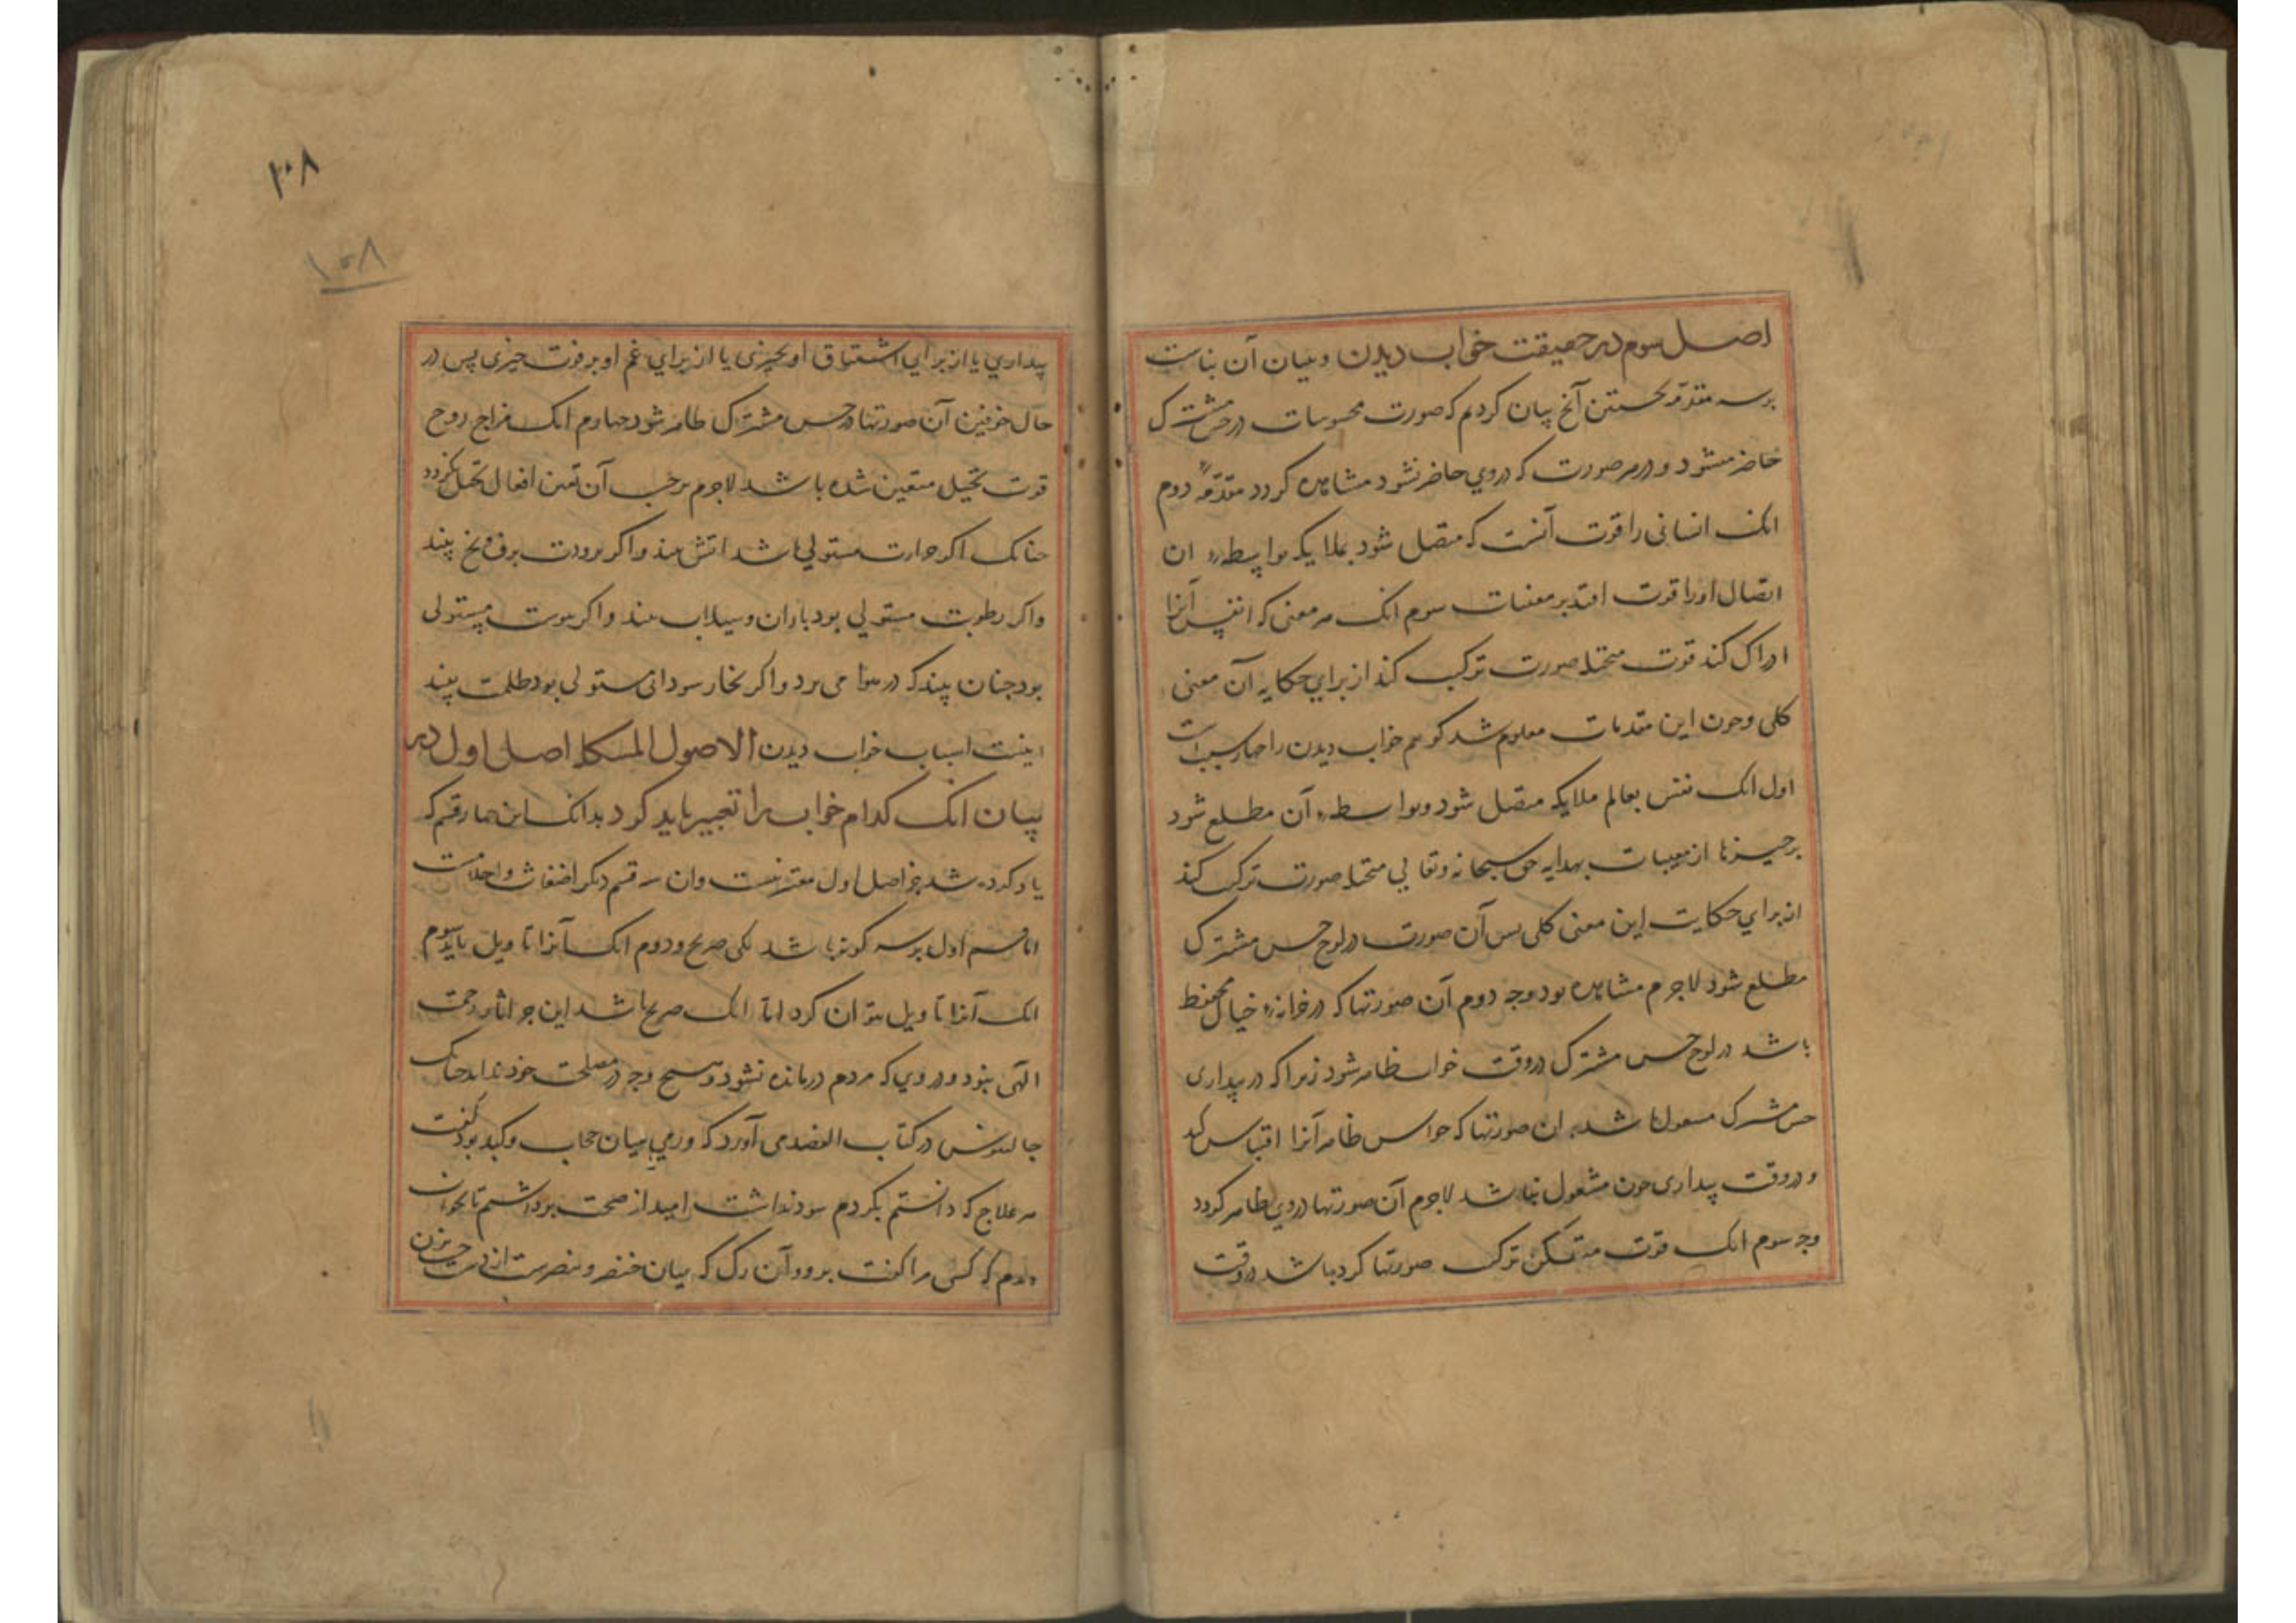 اصل سوم در حقیقت خواب دیدن و بیان آن بناست
بر سه مقدمه نخستین آنچ بیان کردیم که صورت محسوسات در حس مشترک
حاضر میشود و در هر صورت که در وی حاضر شود مشاهده کردد مقدمه دوم
انک انسانی را قوت آنست که متصل شود بملایکه بواسطهٔ ان
اتصال او را قوت افتد بر مغیبات سوم انک هر معنی که نفس آنرا
ادراک کند قوت متخیله صورت ترکیب کند از برای حکایه آن معنی
کلی و چون این مقدمات معلوم شد کوییم خواب دیدن را چهار سبب است
اول انک نفس بعالم ملایکه متصل شود و بواسطهٔ آن مطلع شود
بر چیزها از مغیبات بهدایه حق سبحانه و تعالی متخیله صورت ترکیب کند
از برای حکایت این معنی کلی پس آن صورت در لوح حس مشترک
مطلع شود لاجرم مشاهده بود وجه دوم آن صورتها که در خزانهٔ خیال محفوظ
باشد در لوح حس مشترک در وقت خواب ظاهر شود زیرا که در بیداری
حس مشترک مشغول باشد بدان صورتها که حواس ظاهر آنرا اقتباس کند
و در وقت بیداری چون مشغول نباشد لاجرم آن صورتها در وی ظاهر کردد
وجه سوم انک قوت متفکره ترکیب صورتها کرده باشد در وقت
۱۰۸
۱۰۸
بیداری یا از برای اشتیاق او بچیزی یا از برای غم او بر فوت چیزی پس در
حال خفتن آن صورتها در حس مشترک ظاهر شود چهارم انک مزاج روح
قوت تخیل متعین شده باشد لاجرم بر حسب آن تعین افعال تخیل بکردد
چنانک اکر حرارت مستولی باشد اتش بیند و اکر برودت برف و یخ بیند
و اکر رطوبت مستولی بود باران و سیلاب بیند و اکر یبوست مستولی
بود چنان بیند که در هوا می برد و اکر بخار سودائی مستولی بود ظلمت بیند
اینست اسباب خواب دیدن الاصول المشکله اصل اول در
بیان انک کدام خواب را تعبیر باید کرد بدانک این چهار قسم که
یاد کرده شد جز اصل اول معتبر نیست وان سه قسم دیکر اضغاث و احلامست
اما قسم اول بر سه کونه باشد یکی صریح و دوم انک آنرا تاویل باید سوم
انک آنرا تاویل نتوان کرد اما انک صریح باشد این جز اثار رحمت
الهی نبود در وی که مردم درمانده نشود و هیچ وجه در مصلحت خود نداند چنانک
جالینوس در کتاب الفصد می آورد که ورمی میان حجاب و کبد بود کفت
هر علاج که دانستم بکردم سود نداشت امید از صحت برداشتم تا بخواب
دیدم که کسی مرا کفت برو و آن رک که میان خنصر و بنصرست از دست